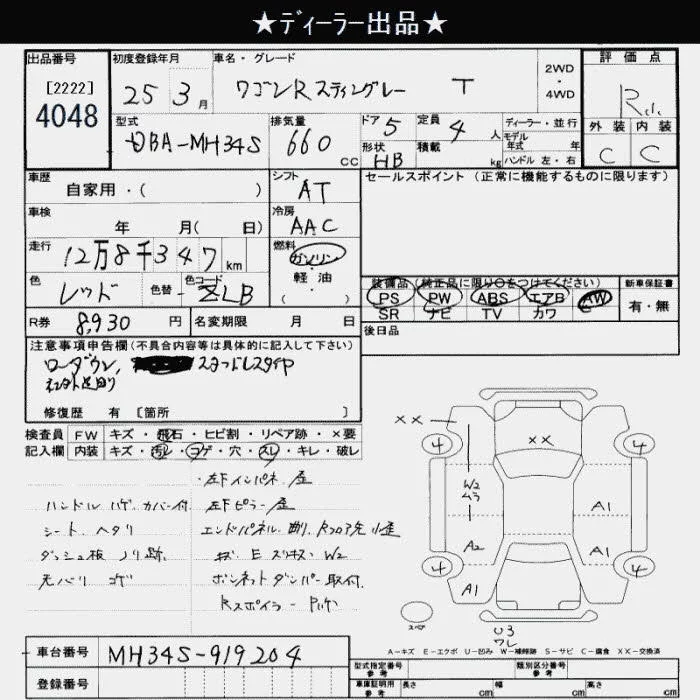 ★ディーラー出品★
出品番号 初度登録年月 車名・グレード 2WD・4WD 評価点
[2222]
4048
25 3月 ワゴンRスティングレー T
外装 内装
C C
型式 排気量 ドア 5 定員 4人 ディーラー・並行
DBA-MH34S 660 CC 形状 HB 積載 kg モデル年式 年
ハンドル 左・右
車歴 シフト セールスポイント (正常に機能するものに限ります)
自家用・( ) AT
車検 冷房
年 月( 日) AAC
走行 燃料
12万8千347 km ガソリン・軽油・( )
色 レッド 色替 色コード ZLB
装備品 (純正品に限り○をつけてください) 新車保証書
PS PW ABS エアB AW 有・無
SR ナビ TV カワ
R券 8,930 円 名変期限 月 日 後日品
注意事項申告欄(不具合内容等は具体的に記入して下さい)
ローダウン, スタッドレスタイヤ
修復歴 有 [箇所 ]
検査員 FW キズ・飛石・ヒビ割・リペア跡・×要
記入欄 内装 キズ・汚レ・コゲ・穴・スレ・キレ・破レ
左Fインパネ 歪
ハンドル ハゲ カバー付 左Fピラー 歪
シート ヘタリ エンドパネル Rフロア先 小歪
ダッシュ板 ノリ跡 W2
天バリ コゲ ボンネットダンパー取付
Rスポイラー
×× ×× 4 4
W2
ムラ A1
A2 A1
4 4
A1
スペア U3
ワレ
A-キズ E-エクボ U-凹み W-補修跡 S-サビ C-腐食 X-交換済
車台番号 MH34S-919204
登録番号
型式指定番号 参考 類別区分番号 参考
車庫証明用 参考 長さ cm 幅 cm 高さ cm